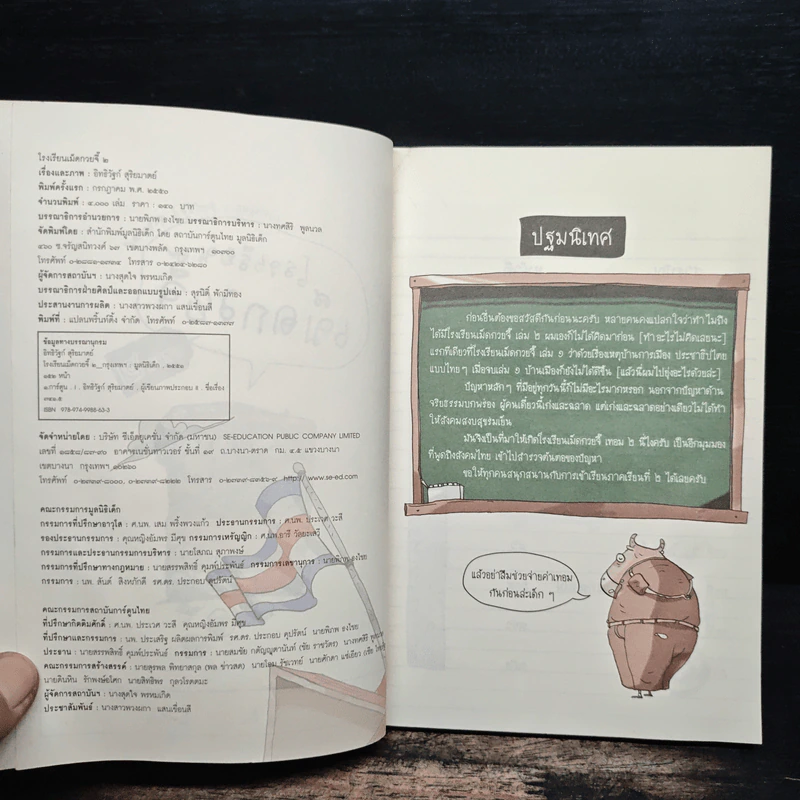 โรงเรียนเม็ดกวยจี๊ ๒
เรื่องและภาพ : อิทธิวัฐก์ สุริยมาตย์
พิมพ์ครั้งแรก : กรกฎาคม พ.ศ. ๒๕๕๑
จำนวนพิมพ์ : ๔,๐๐๐ เล่ม ราคา : ๑๔๐ บาท
บรรณาธิการอำนวยการ : นายพิภพ ธงไชย บรรณาธิการบริหาร : นางทศสิริ พูลนวล
จัดพิมพ์โดย : สำนักพิมพ์มูลนิธิเด็ก โดย สถาบันการ์ตูนไทย มูลนิธิเด็ก
๔๖๐ ซ.จรัญสนิทวงศ์ ๖๗ เขตบางพลัด กรุงเทพฯ ๑๐๗๐๐
โทรศัพท์ โทรสาร
ผู้จัดการสถาบันฯ : นางสุดใจ พรหมเกิด
บรรณาธิการฝ่ายศิลป์และออกแบบรูปเล่ม : สุรนิติ์ พักมีทอง
ประสานงานการผลิต : นางสาวพวงผกา แสนเขื่อนสี
พิมพ์ที่ : แปลนพริ้นท์ติ้ง จำกัด โทรศัพท์
ข้อมูลทางบรรณานุกรม
อิทธิวัฐก์ สุริยมาตย์
โรงเรียนเม็ดกวยจี๊ ๒__กรุงเทพฯ : มูลนิธิเด็ก. ๒๕๕๑
๑๕๒ หน้า
๑.การ์ตูน . I . อิทธิวัฐก์ สุริยมาตย์ , ผู้เขียนภาพประกอบ II . ชื่อเรื่อง
๗๔๑.๕
ISBN 978-974-9988-63-3
จัดจำหน่ายโดย : บริษัท ซีเอ็ดยูเคชั่น จำกัด (มหาชน) SE-EDUCATION PUBLIC COMPANY LIMITED
เลขที่ อาคารเนชั่นทาวเวอร์ ชั้นที่ ๑๙ ถ.บางนา-ตราด กม. ๔.๕ แขวงบางนา
เขตบางนา กรุงเทพฯ ๑๐๒๖๐
โทรศัพท์ โทรสาร http://www.se-ed.com
คณะกรรมการมูลนิธิเด็ก
กรรมการที่ปรึกษาอาวุโส : ศ.นพ. เสม พริ้งพวงแก้ว ประธานกรรมการ : ศ.นพ. ประเวศ วะสี
รองประธานกรรมการ : คุณหญิงอัมพร มีศุข กรรมการเหรัญญิก : ศ.นพ.อารี วัลยะเสวี
กรรมการและประธานกรรมการบริหาร : นายโสภณ สุภาพงษ์
กรรมการที่ปรึกษาทางกฎหมาย : นายสรรพสิทธิ์ คุมพ์ประพันธ์ กรรมการเลขานุการ : นายพิภพ ธงไชย
กรรมการ : นพ. สันต์ สิงหภักดี รศ.ดร. ประกอบ คุปรัตน์
คณะกรรมการสถาบันการ์ตูนไทย
ที่ปรึกษากิตติมศักดิ์ : ศ.นพ. ประเวศ วะสี คุณหญิงอัมพร มีศุข
ที่ปรึกษาและกรรมการ : นพ. ประเสริฐ ผลิตผลการพิมพ์ รศ.ดร. ประกอบ คุปรัตน์ นายพิภพ ธงไชย
ประธาน : นายสรรพสิทธิ์ คุมพ์ประพันธ์ กรรมการ : นายสมชัย กตัญญุตานันท์ (ชัย ราชวัตร) นางทศสิริ
คณะกรรมการสร้างสรรค์ : นายสุรพล พิทยาสกุล (พล ข่าวสด) นายโอม รัชเวทย์ นายศักดา แซ่เอียว
นายดินหิน รักพงษ์อโศก นายสิทธิพร กุลวโรตตมะ
ผู้จัดการสถาบันฯ : นางสุดใจ พรหมเกิด
ประชาสัมพันธ์ : นางสาวพวงผกา แสนเขื่อนสี
ปฐมนิเทศ
ก่อนอื่นต้องขอสวัสดีกันก่อนนะครับ หลายคนคงแปลกใจว่าทำไมถึง
ได้มีโรงเรียนเม็ดกวยจี๊ เล่ม ๒ ผมเองก็ไม่ได้คิดมาก่อน [ทำอะไรไม่คิดเลยนะ]
แรกทีเดียวที่โรงเรียนเม็ดกวยจี๊ เล่ม ๑ ว่าด้วยเรื่องเหตุบ้านการเมือง ประชาธิปไตย
แบบไทย ๆ เมื่อจบเล่ม ๑ บ้านเมืองก็ยังไม่ได้ดีขึ้น [แล้วนี่ผมไปยุ่งอะไรด้วยล่ะ]
ปัญหาหลัก ๆ ที่มีอยู่ทุกวันนี้ก็ไม่มีอะไรมากหรอก นอกจากปัญหาด้าน
จริยธรรมบกพร่อง ผู้คนเดี๋ยวนี้เก่งและฉลาด แต่เก่งและฉลาดอย่างเดียวไม่ได้ทำ
ให้สังคมสงบสุขร่มเย็น
มันจึงเป็นที่มาให้เกิดโรงเรียนเม็ดกวยจี๊ เทอม ๒ นี้ไงครับ เป็นอีกมุมมอง
ที่พูดถึงสังคมไทย เข้าไปสำรวจต้นตอของปัญหา
ขอให้ทุกคนสนุกสนานกับการเข้าเรียนภาคเรียนที่ ๒ ได้เลยครับ
แล้วอย่าลืมช่วยจ่ายค่าเทอม
กันก่อนล่ะเด็ก ๆ